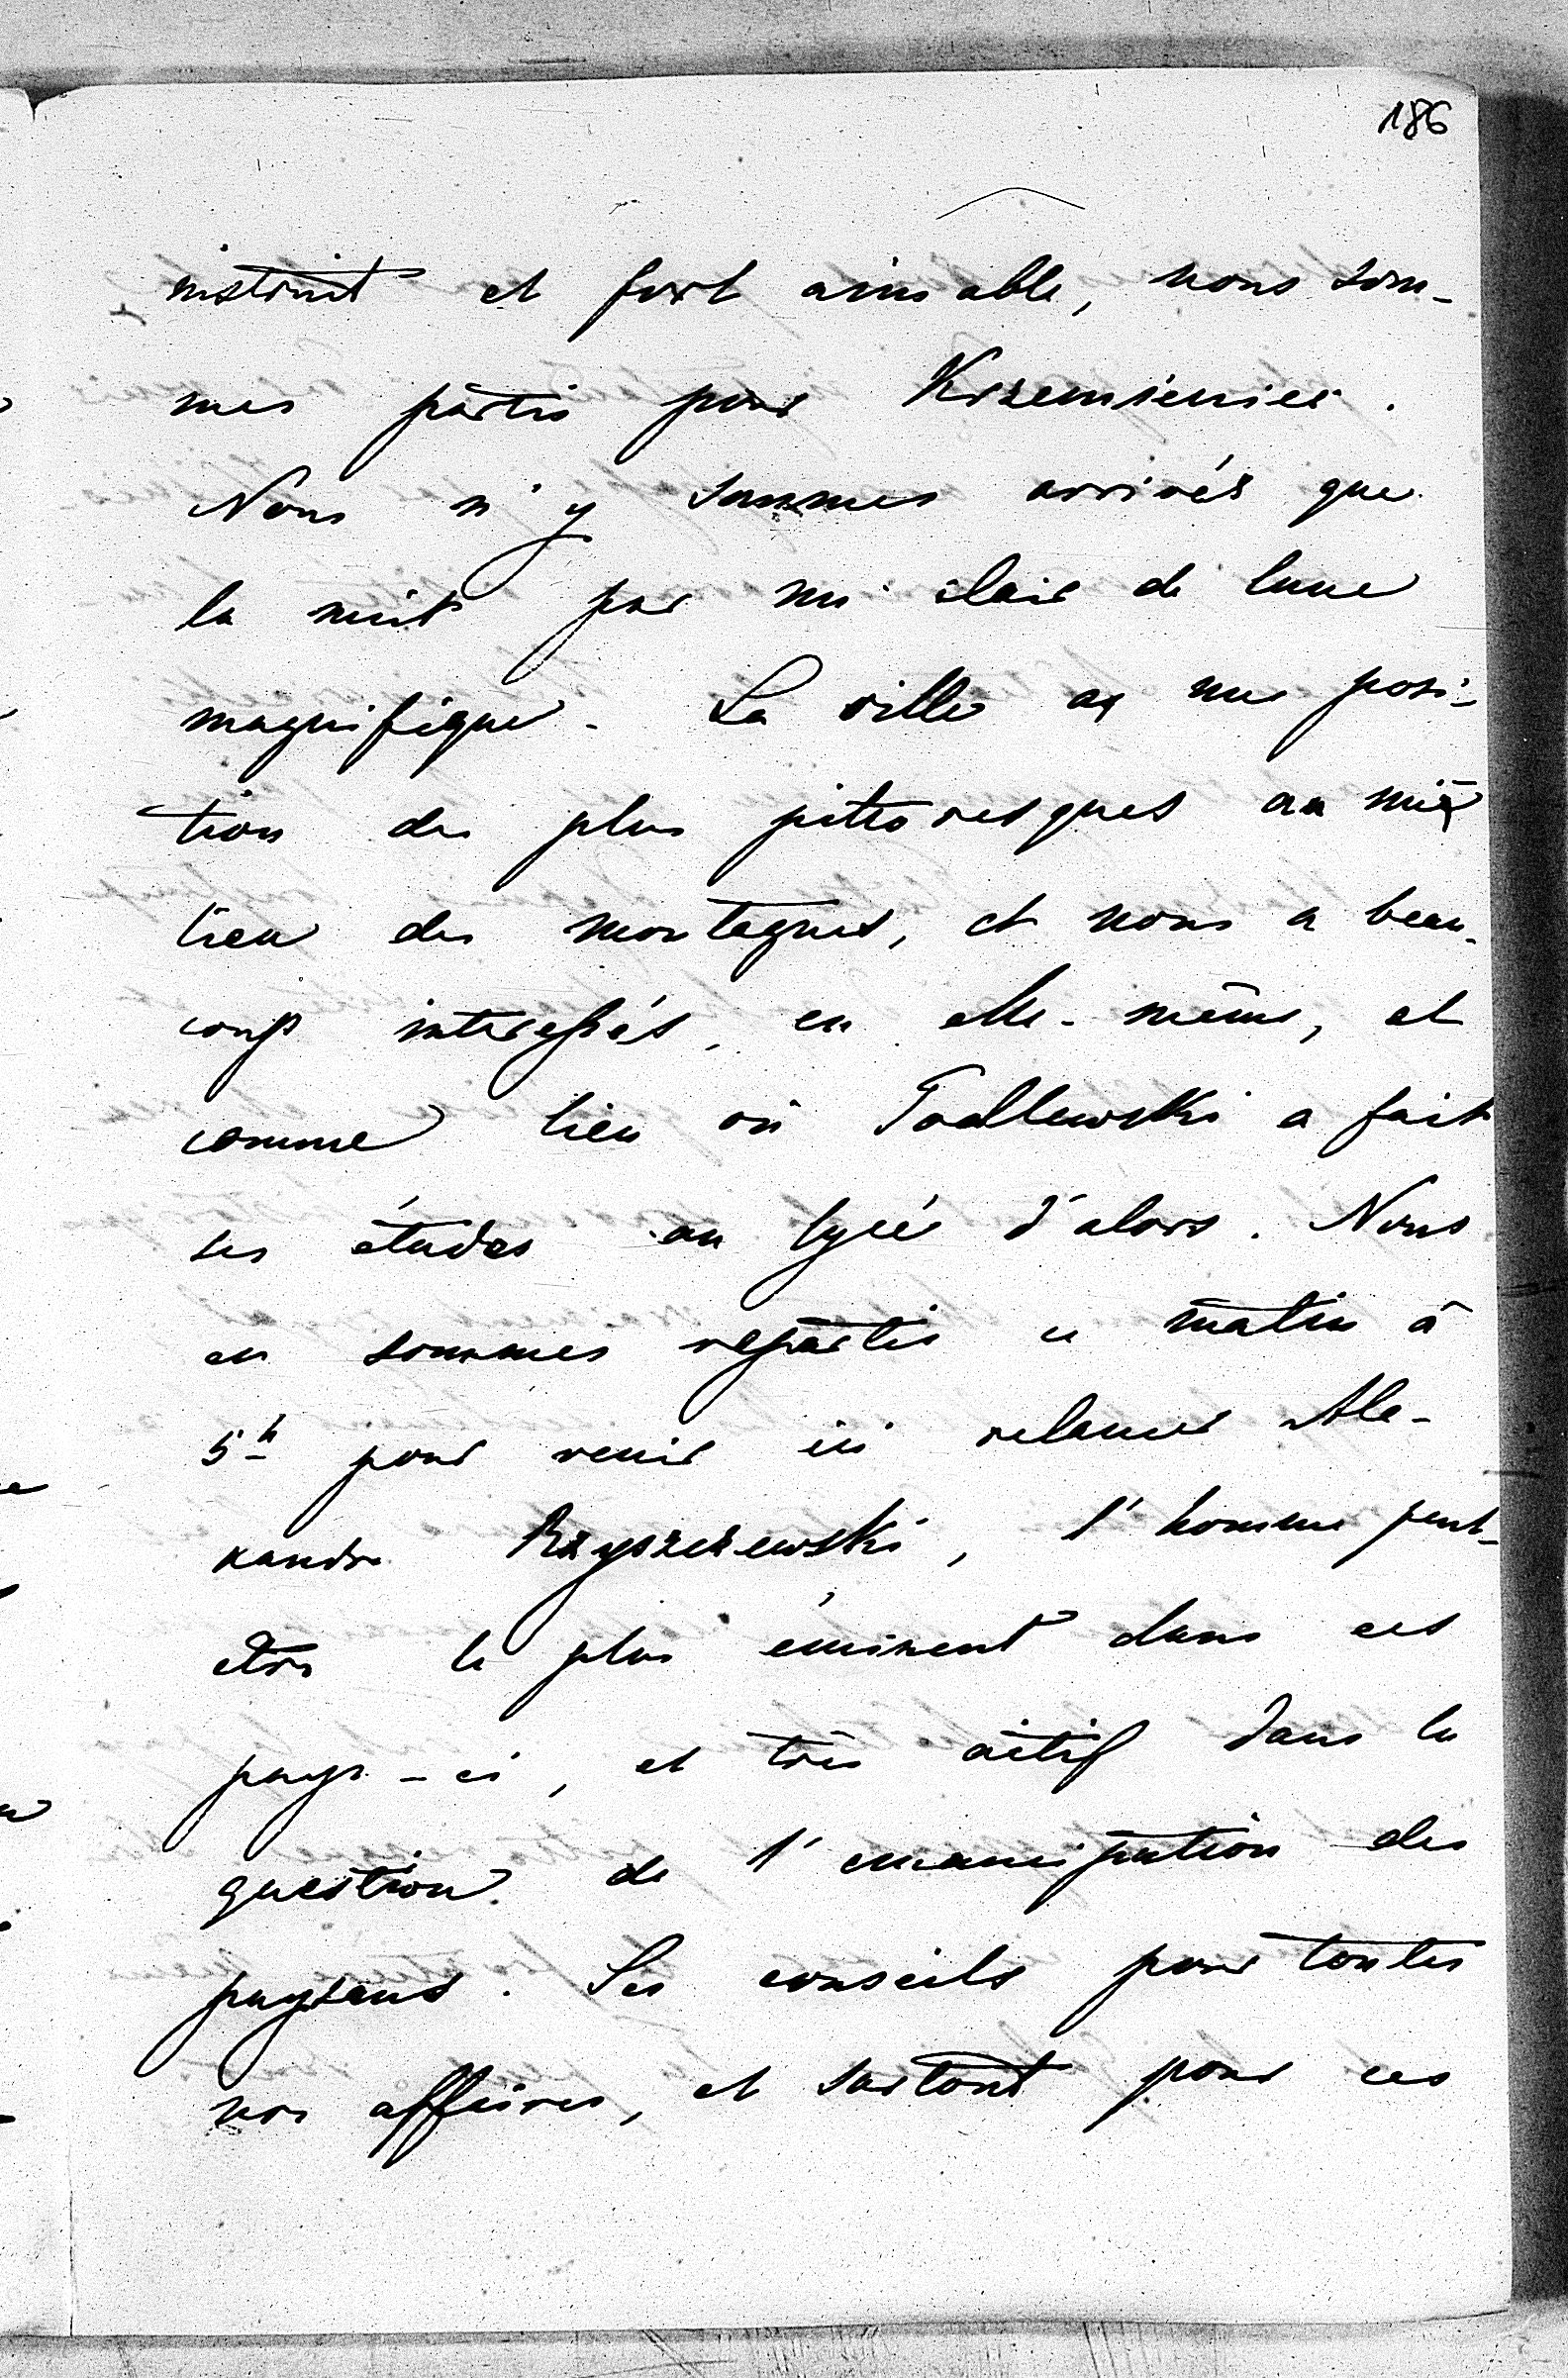 186
instruit et fort aimable, nous som-
mes partis pour Krzemieniec.
Nous n'y sommes arrivés que
la nuit par un clair de lune
magnifique. La ville a une posi-
tion des plus pittoresques au mi-
lieu des montagnes, et nous a beau-
coup interessés, en elle-même, et
comme lieu où Podlewski a fait
ses études au lycée d'alors. Nous
en sommes repartis ce matin à
5h pour venir ici relancer Ale-
xandre Rzyszczewski, l'homme peut-
etre le plus éminent dans ces
pays-ci, et très actif dans la
question de l'emancipation des
paysans. Ses conseils pour toutes
nos affaires, et surtout pour ces